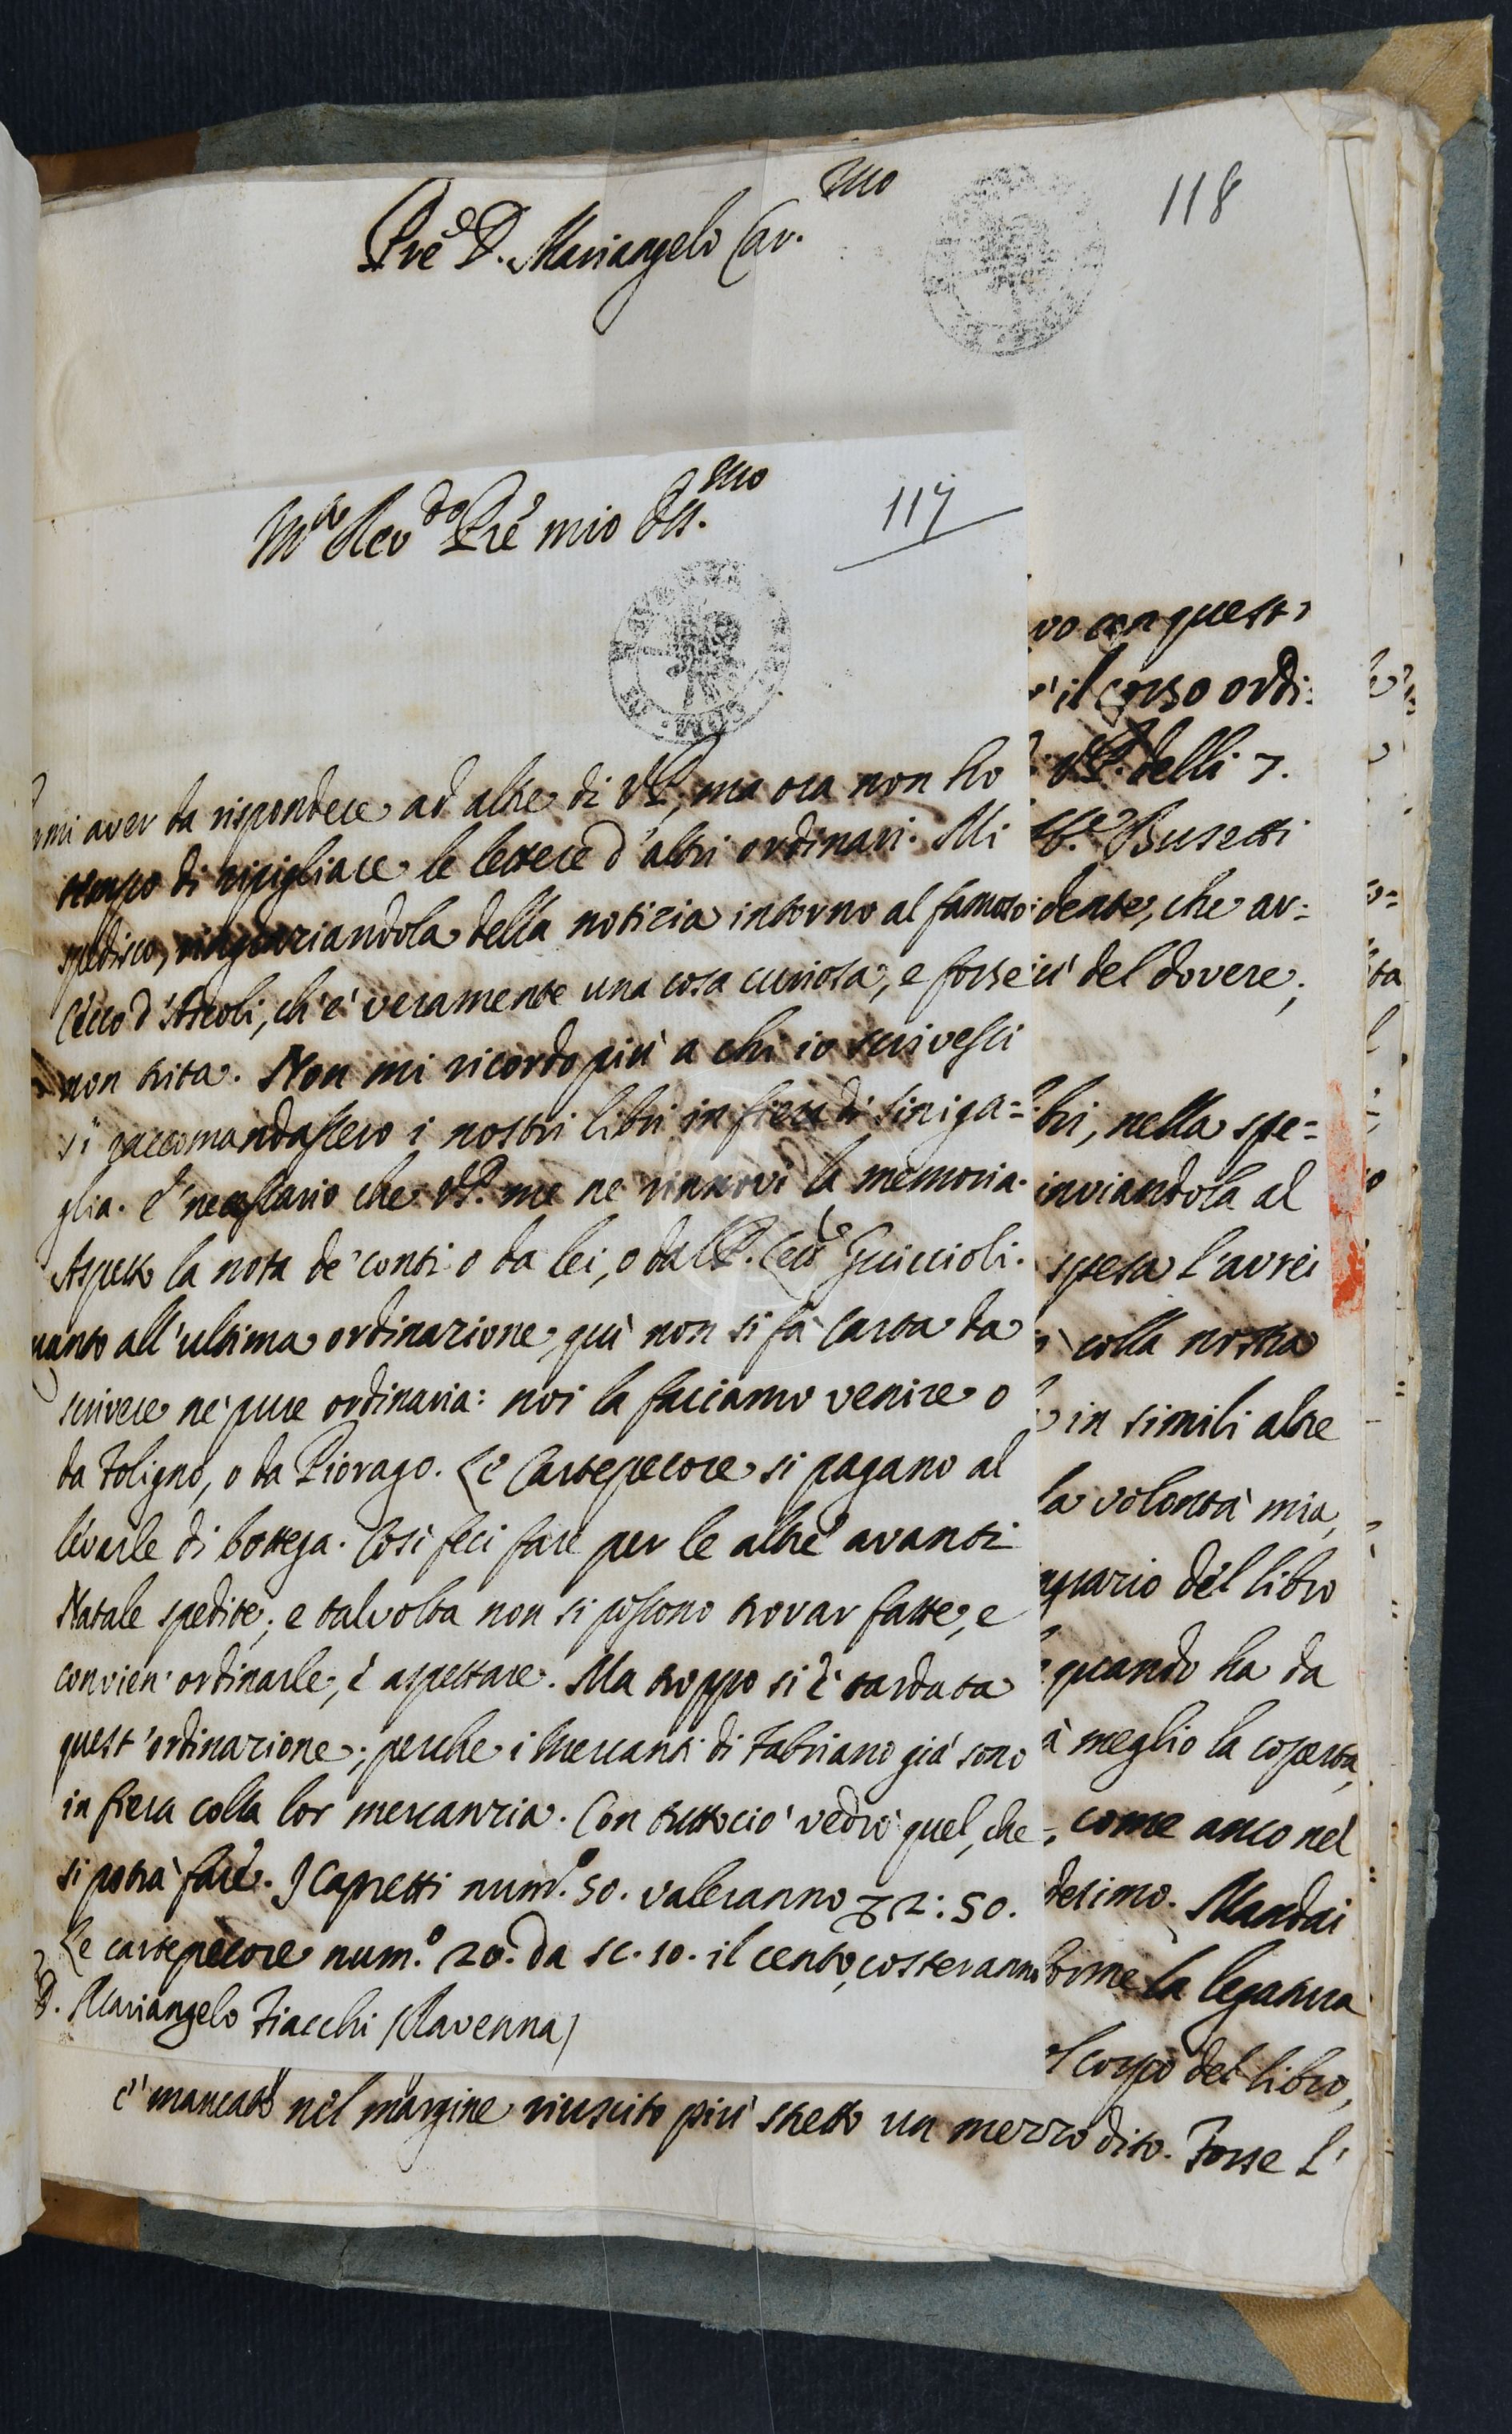 Pre D. Mariangelo Car.mo
118
M.to Rev.do Pre mio Oss.mo
117
rmi aver da rispondere ad altre di V.P., ma ora non ho
tempo di ripigliare le lettere d'altri ordinari. Mi
spedisco, ringraziandola della notizia intorno al famoso
Cecco d'Ascoli, ch'è veramente una cosa curiosa, e forse
non trita. Non mi ricordo più a chi io scrivessi
si raccomandassero i nostri libri in fiera di Siniga=
glia. È necessario che V.P. me ne rinnovi la memoria.
Aspetto la nota de' conti o da lei, o dal P. Guiccioli.
uanto all'ultima ordinazione, quì non si fà carta da
scrivere nè pure ordinaria: noi la facciamo venire o
da Foligno, o da Piorago. Le Cartepecore si pagano al
levarle di bottega. Così feci fare per le altre avanti
Natale spedite; e talvolta non si possono trovar fatte, e
convien' ordinarle, e aspettare. Ma troppo si è tardata
quest'ordinazione; perche i Mercanti di Fabriano già sono
in fiera colla lor mercanzia. Con tuttociò vedrò quel, che
si potrà fare. I Capretti num.o 50. valeranno 2:50.
Le cartepecore num.o 20. da sc. 10. il cento, costeranno
D. Mariangelo Fiacchi (Ravenna)
vo con questi
il corso ordi:
V.P. delli 7.
Busetti
dente, che av:
iù del dovere;
bri, nella spe=
inviandola al
spesa l'avrei
colla nostra
in simili altre
la volontà mia,
quario del libro
quando ha da
à meglio la coperta,
come anco nel
desimo. Mandai
forme la legatura
l corpo del libro,
è mancato nel margine riuscito più stretto un mezzo dito. Forse l'